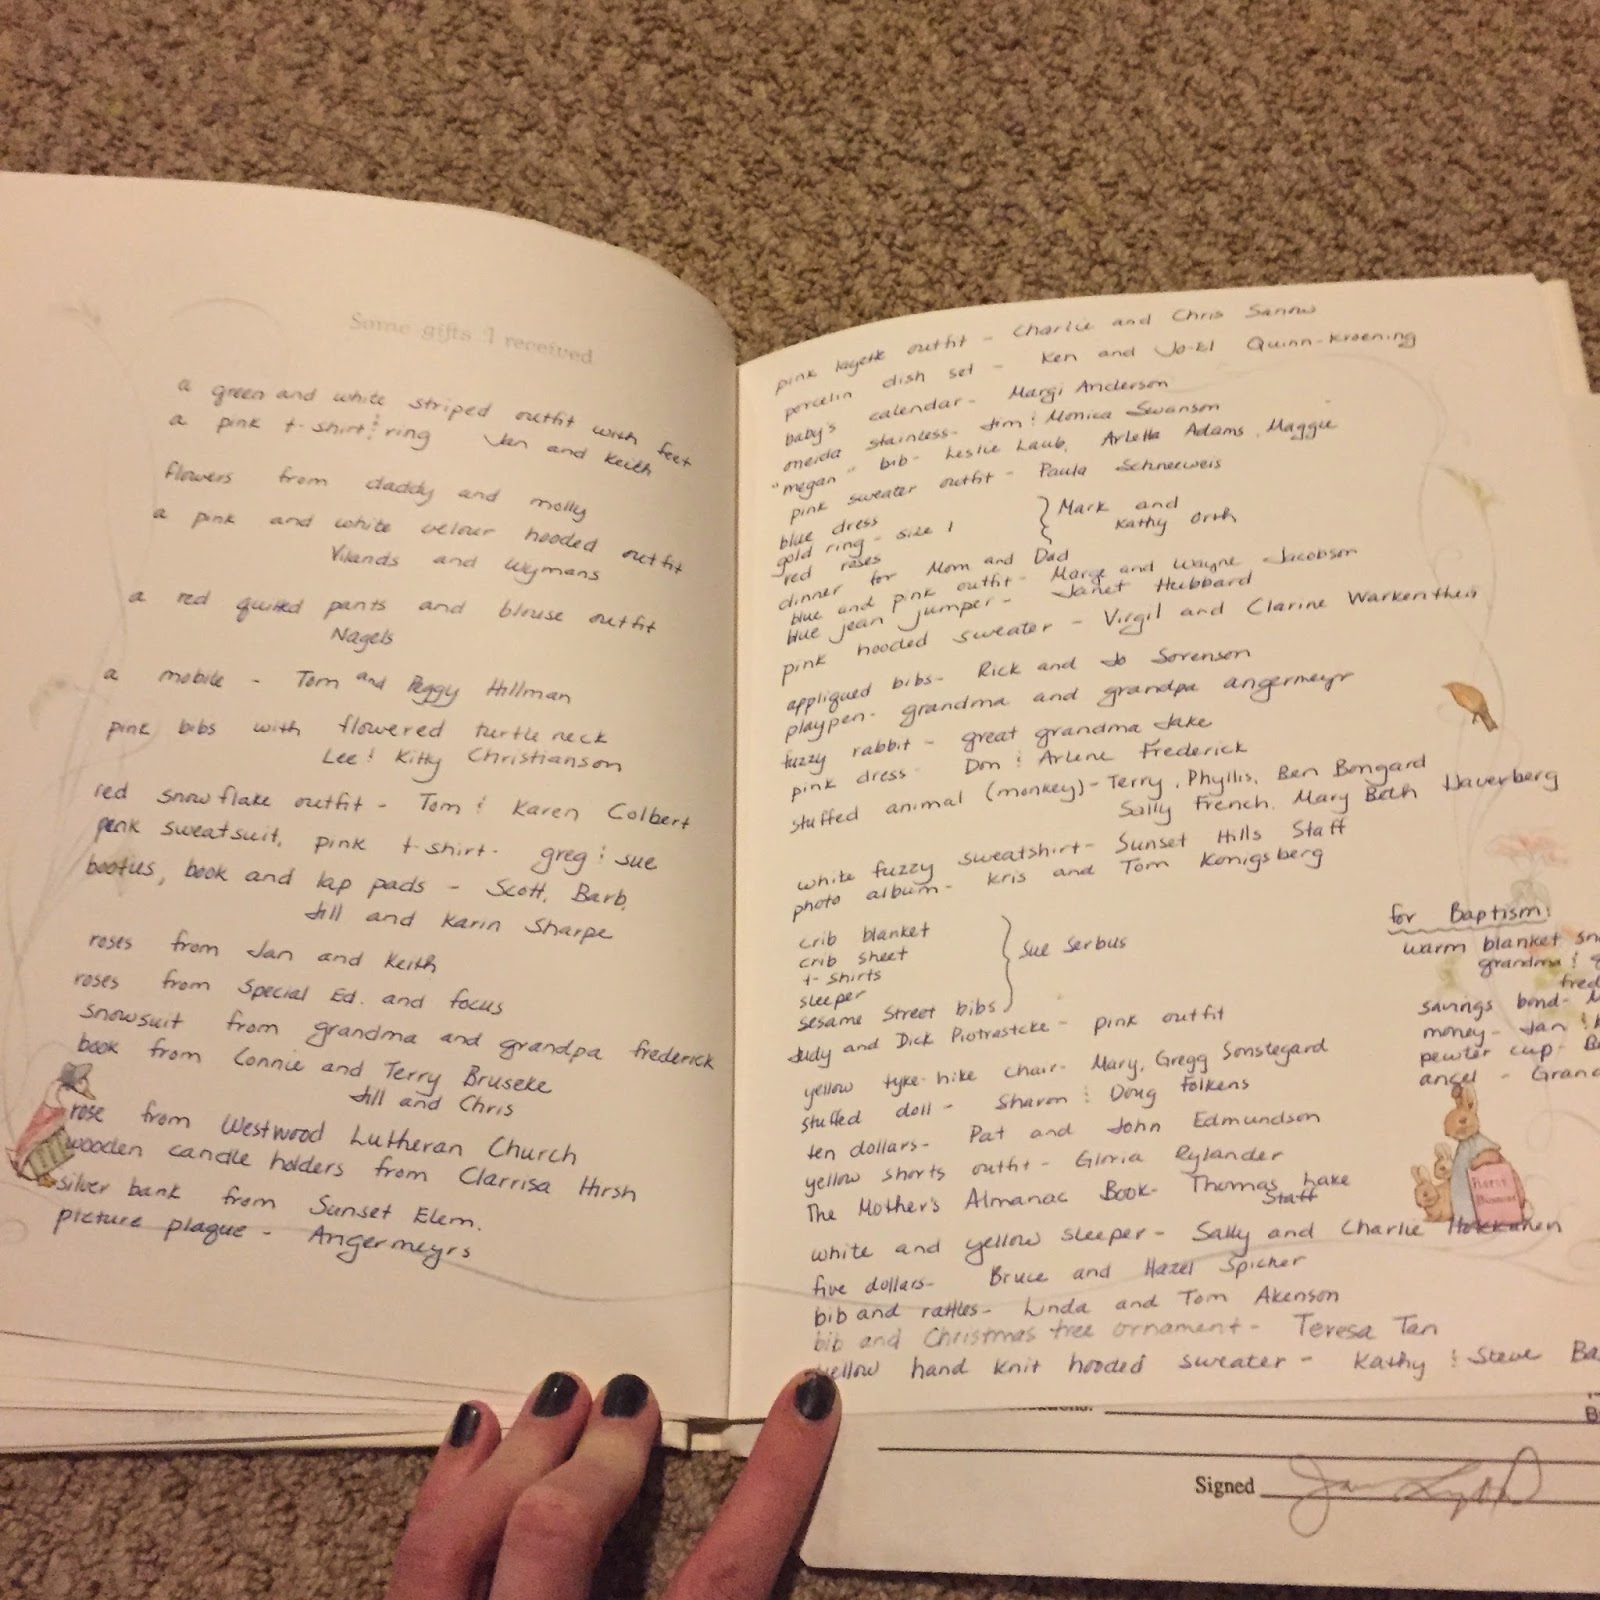 Some gifts I received
a green and white striped outfit with feet
a pink t-shirt & ring Jan and Keith
flowers from daddy and molly
a pink and white velour hooded outfit
Vilands and Wymans
a red quilted pants and blouse outfit
Nagels
a mobile - Tom and Peggy Hillman
pink bibs with flowered turtleneck
Lee & Kitty Christianson
red snowflake outfit - Tom & Karen Colbert
pink sweatsuit, pink t-shirt - greg & sue
booties, book and lap pads - Scott, Barb,
Jill and Karin Sharpe
roses from Jan and Keith
roses from Special Ed. and focus
snowsuit from grandma and grandpa frederick
book from Connie and Terry Bruseke
Jill and Chris
rose from Westwood Lutheran Church
wooden candle holders from Clarrisa Hirsh
silver bank from Sunset Elem.
picture plaque - Angermeyrs
pink layette outfit - Charlie and Chris Sanow
porcelin dish set - Ken and Jo-El Quinn-Kroening
baby's calendar - Margi Anderson
oneida stainless - Jim & Monica Swanson
"megan" bib - Leslie Laub, Arletta Adams, Maggie
pink sweater outfit - Paula Schneeweis
blue dress
gold ring - size 1
red roses
} Mark and
Kathy Orth
dinner for Mom and Dad
blue and pink outfit - Marge and Wayne Jacobson
blue jean jumper - Janet Hubbard
pink hooded sweater - Virgil and Clarine Warkenthein
appliqued bibs - Rick and Jo Sorenson
playpen - grandma and grandpa angermeyr
fuzzy rabbit - great grandma Jake
pink dress - Don & Arlene Frederick
stuffed animal (monkey) - Terry, Phyllis, Ben Bongard
Sally French, Mary Beth Haverberg
white fuzzy sweatshirt - Sunset Hills Staff
photo album - Kris and Tom Konigsberg
crib blanket
crib sheet
t-shirts
sleeper
sesame Street bibs
} Sue Serbus
Judy and Dick Piotrastcke - pink outfit
yellow tyke-hike chair - Mary, Gregg Sonstegard
stuffed doll - Sharon & Doug Folkens
ten dollars - Pat and John Edmundson
yellow shorts outfit - Gloria Rylander
The Mother's Almanac Book - Thomas Lake
Staff
white and yellow sleeper - Sally and Charlie Hokkanen
five dollars - Bruce and Hazel Spicher
bib and rattles - Linda and Tom Akenson
bib and Christmas tree ornament - Teresa Tan
yellow hand knit hooded sweater - Kathy & Steve Ba
for Baptism:
warm blanket
grandma &
fred
savings bond -
money - Jan &
pewter cup -
angel - Grand
Signed